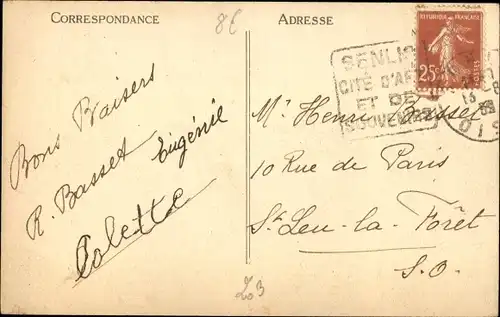 CORRESPONDANCE
8€
ADRESSE
REPUBLIQUE FRANÇAISE
25c
POSTES
SENLIS
CITÉ D'ART
ET DE
SOUVENIRS
OIS
Bons Baisers
R. Basset Eugénie
Colette
Mr Henri Basset
10 Rue de Paris
St Leu-la-Forêt
S.O.
203